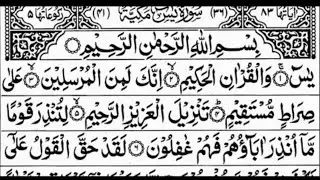 اٰیاتها ٨٣ (٣٦) سُوْرَةُ يٰسٓ مَكِّيَّةٌ (٤١) رکوعاتها ٥
بِسْمِ اللّٰهِ الرَّحْمٰنِ الرَّحِيْمِ
يٰسٓ ۚ﴿١﴾ وَالْقُرْاٰنِ الْحَكِيْمِ ۙ﴿٢﴾ اِنَّكَ لَمِنَ الْمُرْسَلِيْنَ ۙ﴿٣﴾ عَلٰى
صِرَاطٍ مُّسْتَقِيْمٍ ؕ﴿٤﴾ تَنْزِيْلَ الْعَزِيْزِ الرَّحِيْمِ ۙ﴿٥﴾ لِتُنْذِرَ قَوْمًا
مَّاۤ اُنْذِرَ اٰبَآؤُهُمْ فَهُمْ غٰفِلُوْنَ ﴿٦﴾ لَقَدْ حَقَّ الْقَوْلُ عَلٰٓى